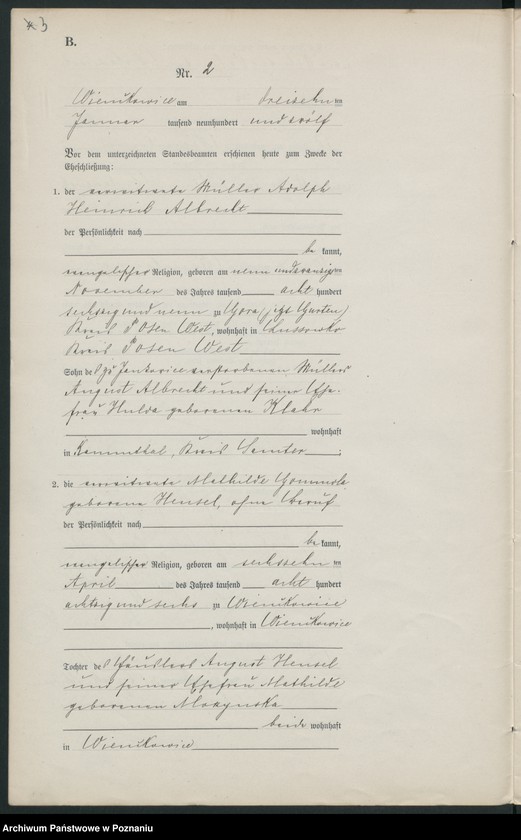 3
B.
Nr. 2
am dreizehnten
Januar tausend neunhundert und zwölf
Vor dem unterzeichneten Standesbeamten erschienen heute zum Zwecke der
Eheschließung:
1. der verwitwete Müller Adolph
Heinrich Albrecht
der Persönlichkeit nach
be kannt,
evangelischer Religion, geboren am neun und zwanzigsten
November des Jahres tausend acht hundert
sechszig und neun zu Gora (jetzt Gurten)
Kreis Posen West, wohnhaft in Lussowko
Kreis Posen West
Sohn des zu Jankowice verstorbenen Müllers
August Albrecht und seiner Ehe-
frau Hulda geborenen
wohnhaft
in Kammthal, Kreis Samter ;
2. die verwitwete Mathilde
geborene Hensel, ohne Beruf
der Persönlichkeit nach
be kannt,
evangelischer Religion, geboren am sechszehnten
April des Jahres tausend acht hundert
achtzig und sechs zu
, wohnhaft in
Tochter des Häuslers August Hensel
und seiner Ehefrau Mathilde
geborenen
beide wohnhaft
in
Archiwum Państwowe w Poznaniu